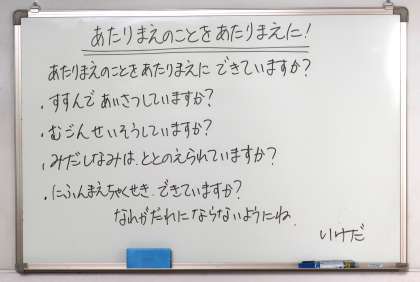 あたりまえのことをあたりまえに!
あたりまえのことをあたりまえに できていますか?
・すすんで あいさつしていますか?
・むごんせいそうしていますか?
・みだしなみは、ととのえられていますか?
・にふんまえちゃくせき、できていますか?
なれがだれにならないようにね、
いけだ